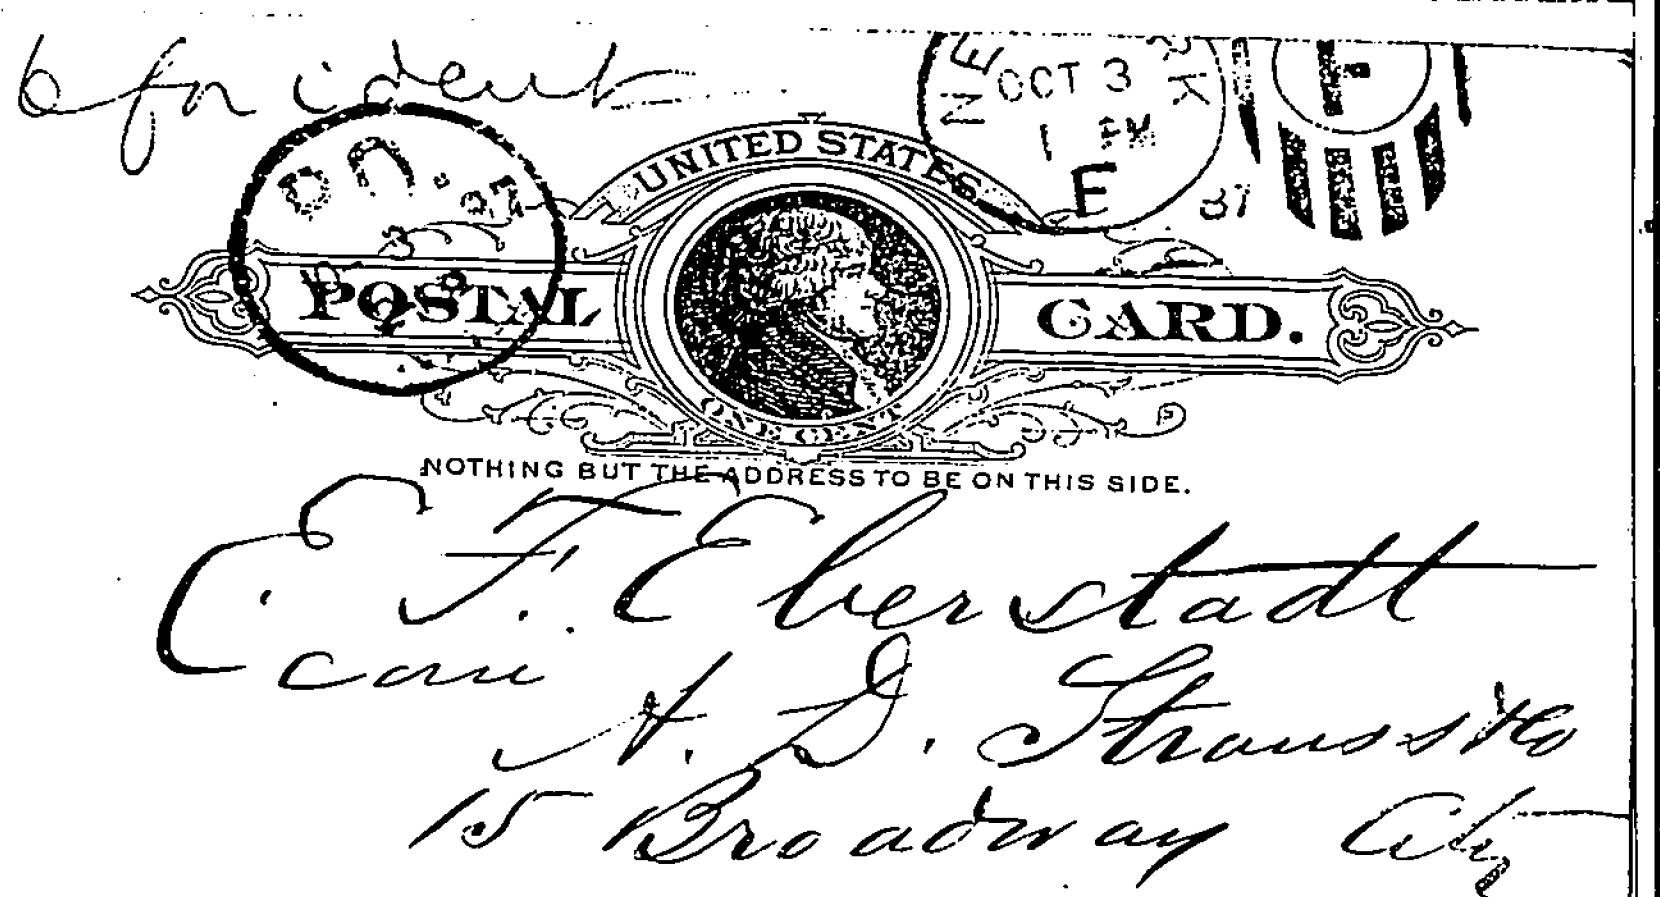 6 for ident
NEW YORK
OCT 3
1 PM
87
E
UNITED STATES
POSTAL CARD.
ONE CENT
NOTHING BUT THE ADDRESS TO BE ON THIS SIDE.
E. F. Eberstadt
care
A. D. Straus & Co
15 Broadway City